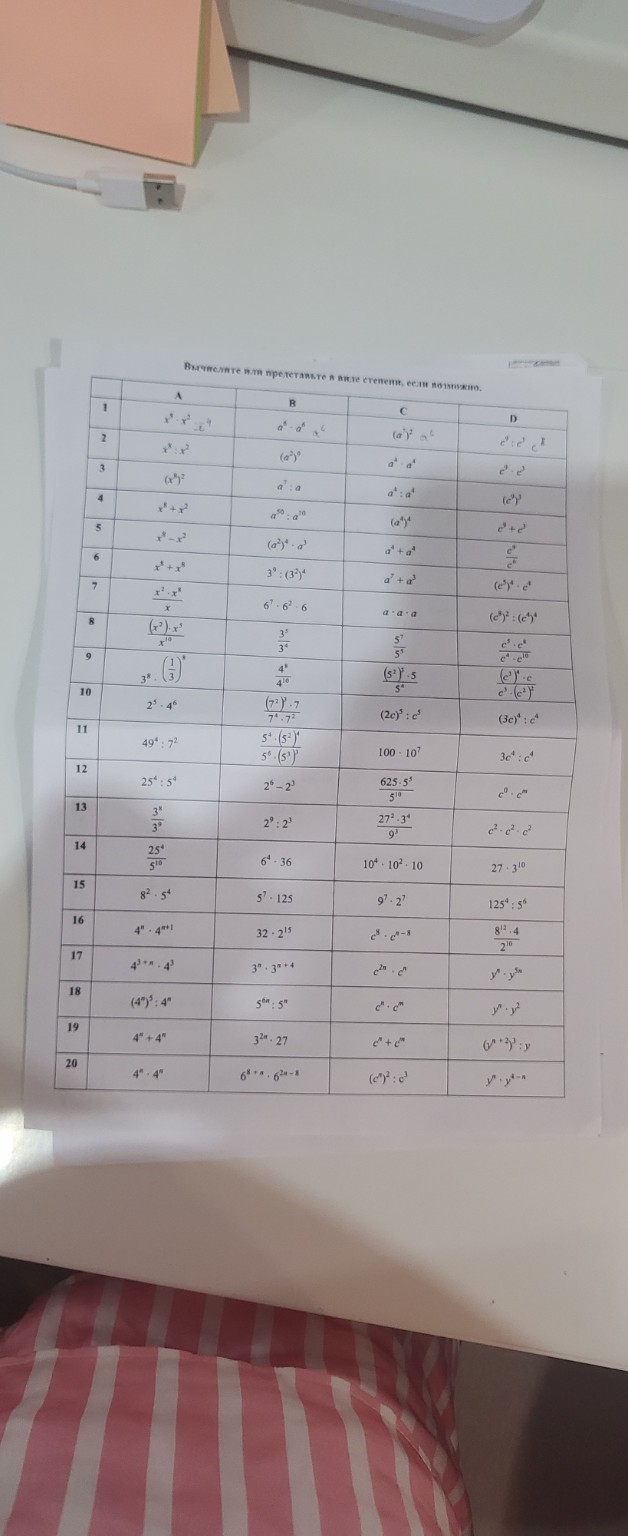 Вычислите или представьте в виде степени, если возможно.
A B C D
1 x⁸ · x² a⁶ · a⁶ (a⁷)² c⁹ : c³
2 x⁸ : x² (a²)⁶ a⁴ · a⁴ c⁹ · c³
3 (x⁸)² a⁷ : a a⁴ : a⁴ (c⁹)³
4 x⁸ + x² a⁵⁰ : a¹⁰ (a⁴)⁴ c⁹ + c³
5 x⁸ − x² (a²)⁴ · a³ a⁴ + a⁴
6 x⁸ + x⁸ 3⁹ : (3²)⁴ a⁷ + a³ (c³)⁴ · c⁴
7 x² · x⁸ / x 6⁷ · 6² · 6 a · a · a (c⁸)² : (c⁴)⁴
8
9 4⁸ / 4¹⁰
10 2⁵ · 4⁶ (7²)³ · 7 / 7⁴ · 7² (2c)⁵ : c⁵ (3c)⁴ : c⁴
11 49⁴ : 7² 5⁴ · (5²)⁴ / 5⁶ · (5³)³ 100 · 10⁷ 3c⁴ : c⁴
12 25⁴ : 5⁴ 2⁶ − 2³ 625 · 5³ / 5¹⁰ c⁰ · cᵐ
13 3⁹ / 3⁹ 2⁹ : 2³ 27² · 3⁴ / 9³ c² · c² · c²
14 25⁴ / 5¹⁰ 6⁴ · 36 10⁴ · 10² · 10 27 · 3¹⁰
15 8² · 5⁴ 5⁷ · 125 9⁷ · 2⁷ 125⁴ : 5⁶
16 4ⁿ · 4ⁿ⁺¹ 32 · 2¹⁵ c⁸ · cⁿ⁻⁸ 8¹² · 4 / 2¹⁰
17 4³⁺ⁿ · 4³ 3ⁿ · 3ⁿ⁺⁴ c²ⁿ · cⁿ yⁿ · y⁵ⁿ
18 (4ⁿ)⁵ : 4ⁿ 5⁶ⁿ : 5ⁿ cⁿ · cᵐ yⁿ · y²
19 4ⁿ + 4ⁿ 3²ⁿ · 27 cⁿ + cᵐ (yⁿ⁺²)³ : y
20 4ⁿ · 4ⁿ 6⁸⁺ⁿ · 6²ⁿ⁻⁸ (cⁿ)² : c³ yⁿ · y⁴⁻ⁿ